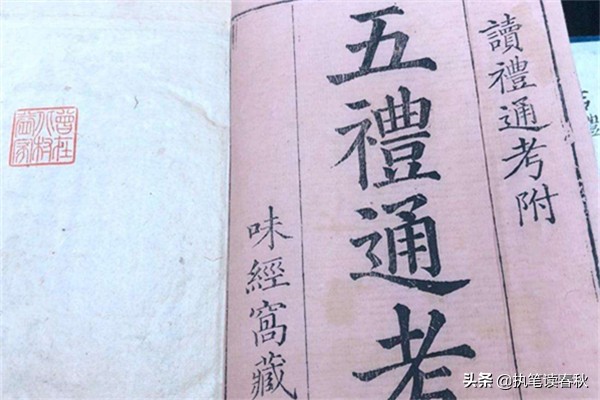 讀禮通考附
五禮通考
味經窩藏
曾在
头条 @执笔读春秋